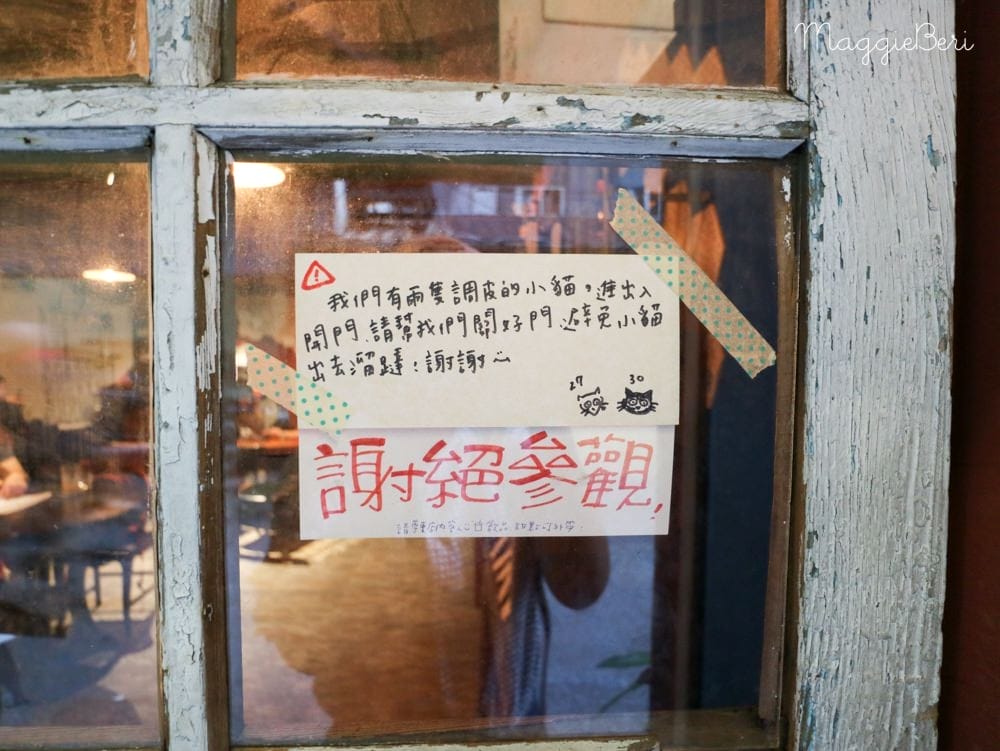 MaggieBeri
我們有兩隻調皮的小貓,進出入
開門請幫我們關好門,避免小貓
出去溜躂!謝謝
27 30
謝絕參觀!